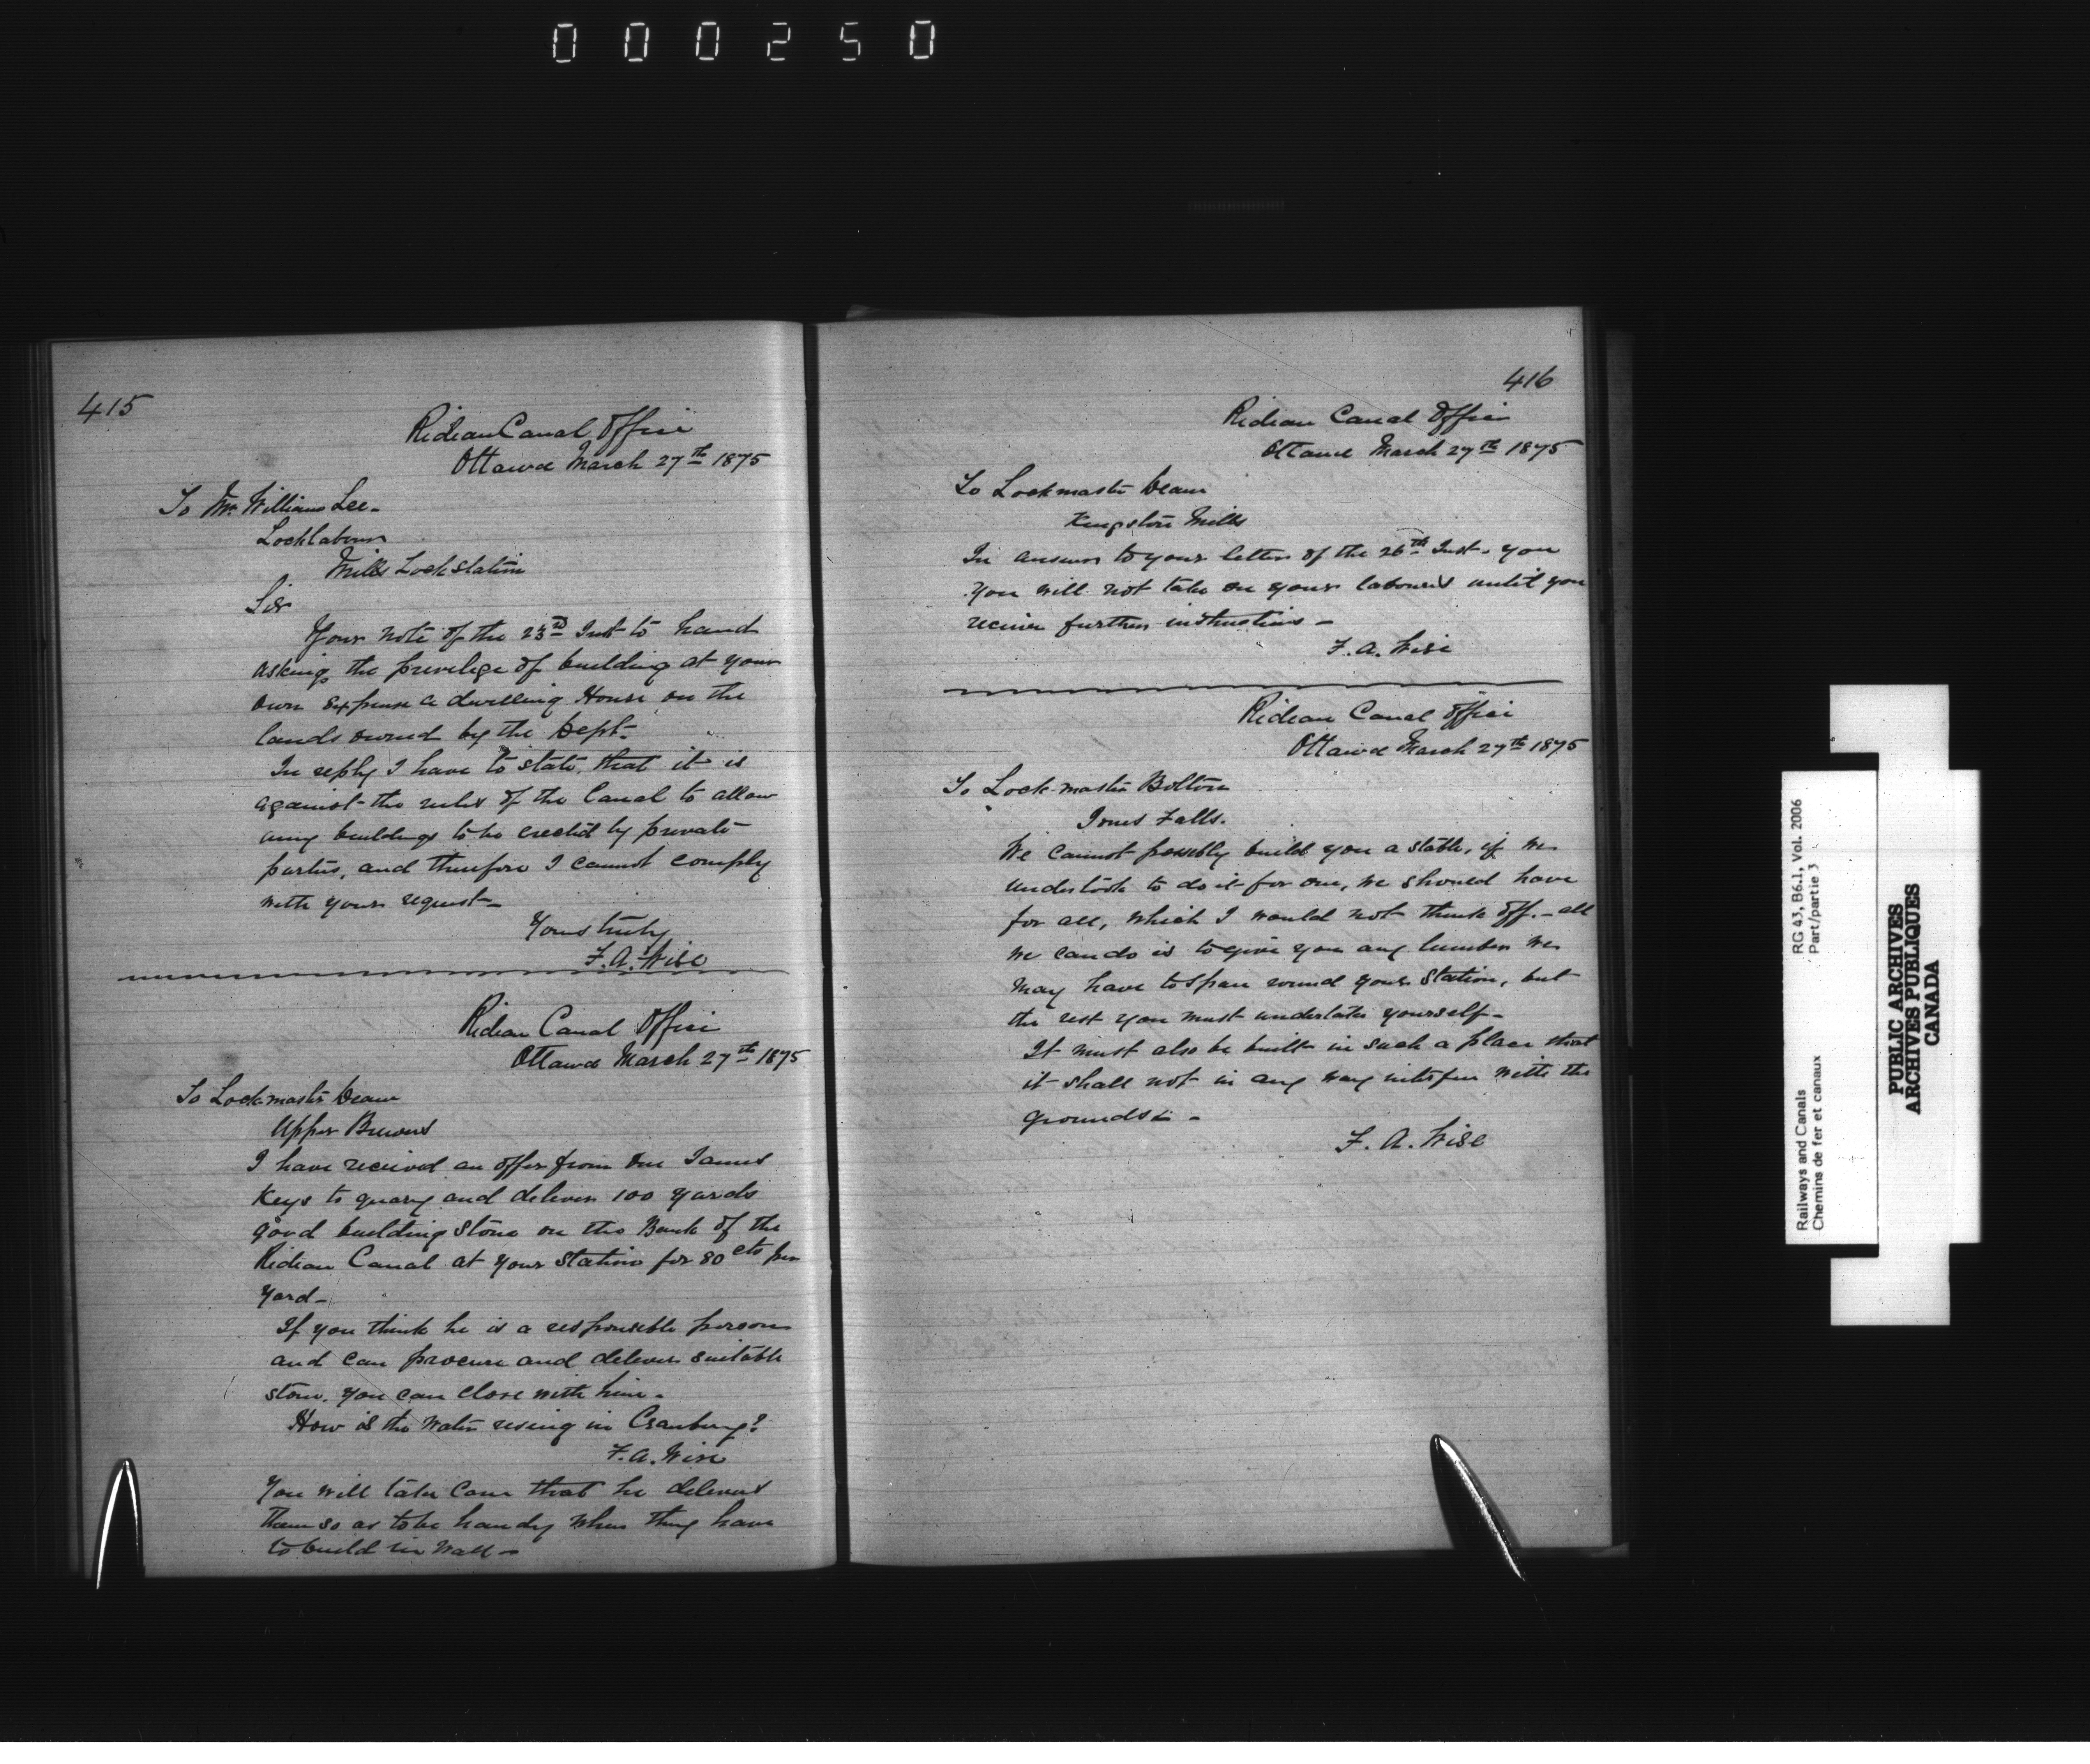 000250
415
Rideau Canal Office
Ottawa March 27th 1875
To Mr. William Lee.
Locklaborer
Mills Lock Station
Sir
Your note of the 23rd Inst to hand
asking the privilege of building at your
own expense a dwelling House on the
lands owned by the Dept.
In reply I have to state, that it is
against the rules of the Canal to allow
any buildings to be erected by private
parties, and therefore I cannot comply
with your request—
Yours truly
F. A. Wise
Rideau Canal Office
Ottawa March 27th 1875
To Lockmaster Deane
Upper Brewers
I have received an offer from one James
Keys to quarry and deliver 100 yards
good building stone on the Bank of the
Rideau Canal at your station for 80 cts per
Yard—
If you think he is a responsible person
and can procure and deliver suitable
stone. you can close with him.
How is the water rising in Cranberry?
F. A. Wise
You will take care that he delivers
them so as to be handy when they have
to build in Wall—
416
Rideau Canal Office
Ottawa March 27th 1875
To Lockmaster Deane
Kingston Mills
In answer to your letter of the 26th Inst. you
you will not take on your labourers until you
receive further instructions—
F. A. Wise
Rideau Canal Office
Ottawa March 27th 1875
To Lock-master Bolton
Jones Falls.
We cannot possibly build you a stable, if we
undertook to do it for one, we should have
for all, which I would not think off.— all
we can do is to give you any lumber we
may have to spare round your station, but
the rest you must undertake yourself—
It must also be built in such a place that
it shall not in any way interfere with the
grounds.—
F. A. Wise
RG 43, B6.1, Vol. 2006
Part/partie 3
Railways and Canals
Chemins de fer et canaux
PUBLIC ARCHIVES
ARCHIVES PUBLIQUES
CANADA